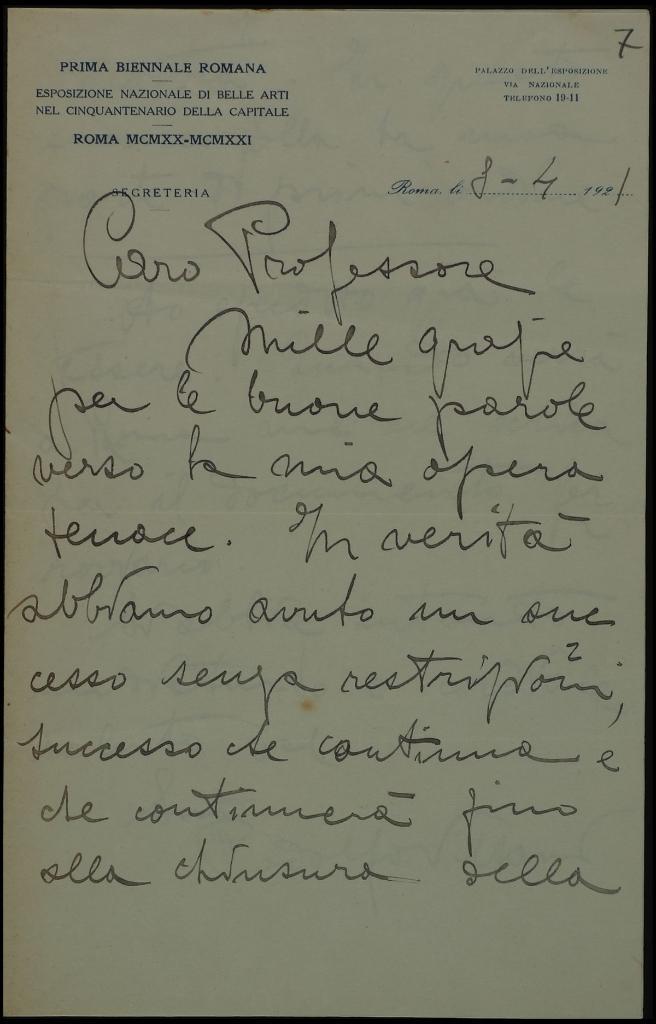 7
PRIMA BIENNALE ROMANA
ESPOSIZIONE NAZIONALE DI BELLE ARTI
NEL CINQUANTENARIO DELLA CAPITALE
ROMA MCMXX-MCMXXI
SEGRETERIA
PALAZZO DELL'ESPOSIZIONE
VIA NAZIONALE
TELEFONO 19-11
Roma, li 8-4 1921
Caro Professore
Mille grazie
per le buone parole
verso la mia opera
tenace. In verità
abbiamo avuto un suc
cesso senza restrizioni,
successo che continua e
che continuerà fino
alla chiusura della